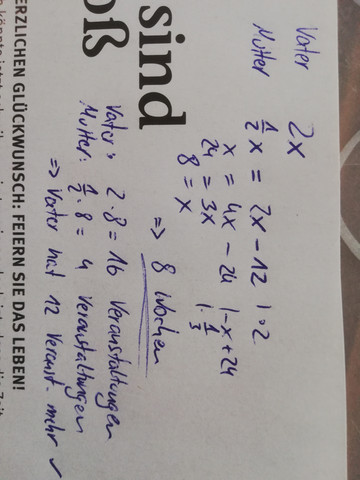 Vater 2x
Mutter ½x = 2x - 12 | · 2
x = 4x - 24 | -x + 24
24 = 3x | · 1/3
8 = x
=> 8 Wochen
Vater: 2 · 8 = 16 Veranstaltungen
Mutter: ½ · 8 = 4 Veranstaltungen
=> Vater hat 12 Veranst. mehr ✓
sind
oß
ERZLICHEN GLÜCKWUNSCH: FEIERN SIE DAS LEBEN!